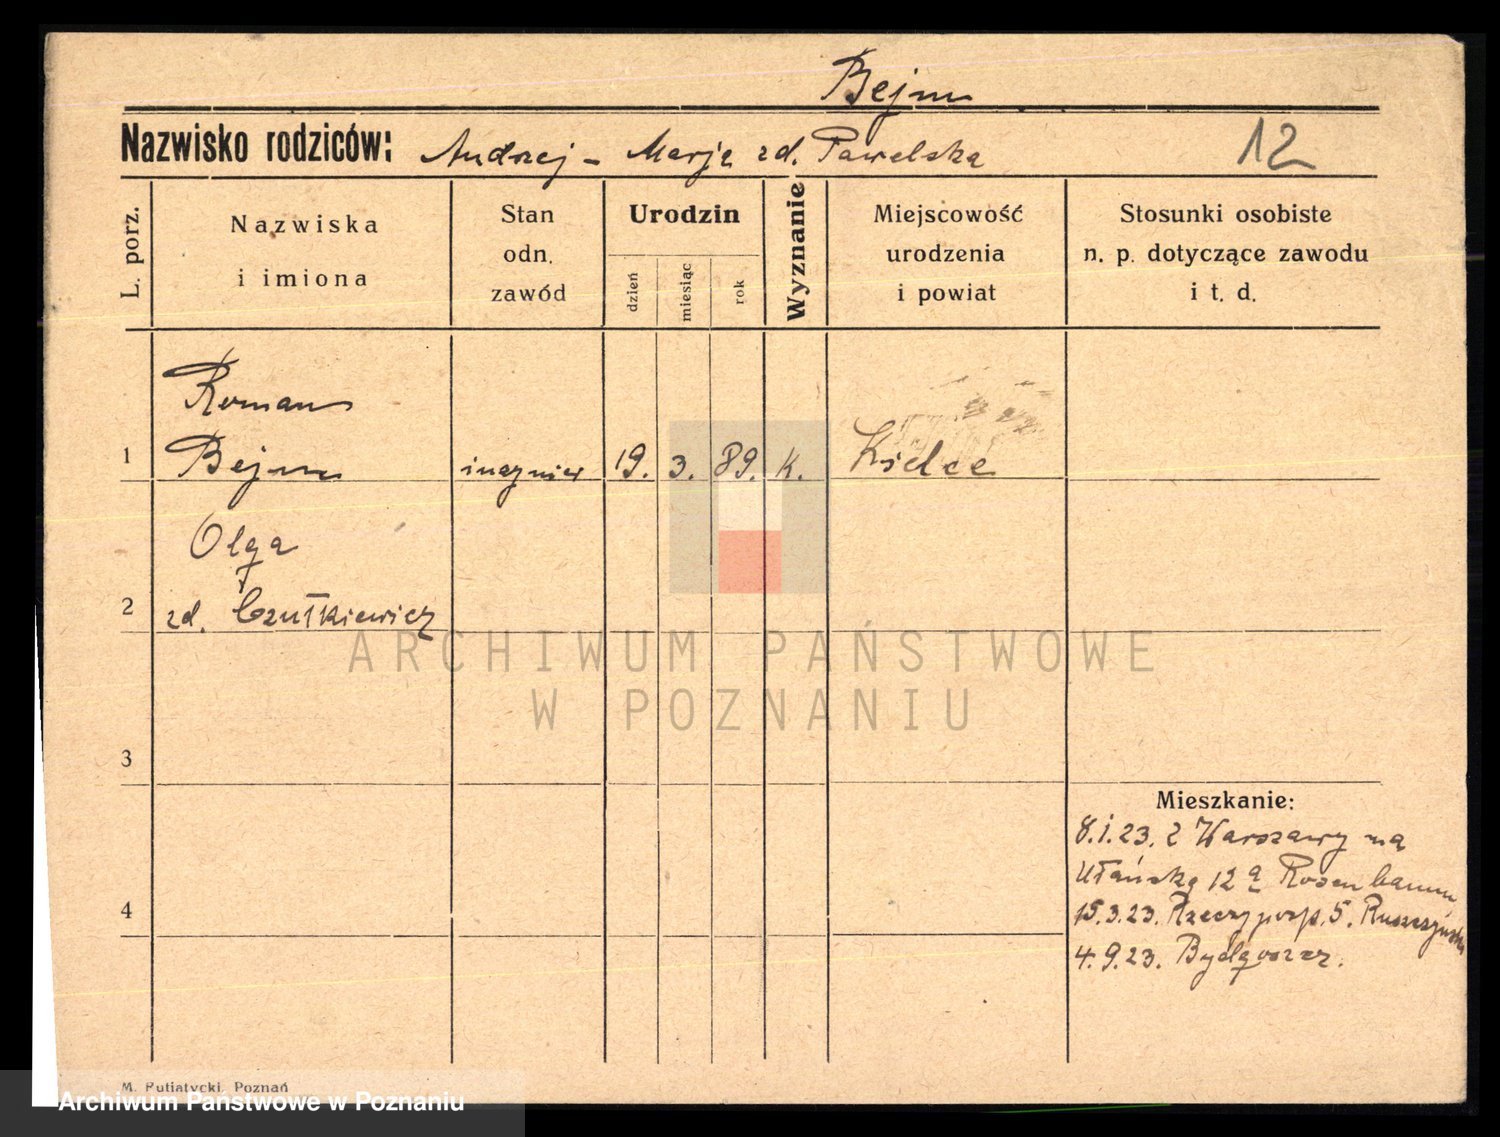 Bejm
Nazwisko rodziców: Andrzej – Marja zd. Pawelska 12
L. porz.
Nazwiska
i imiona
Stan
odn.
zawód
Urodzin
dzień
miesiąc
rok
Wyznanie
Miejscowość
urodzenia
i powiat
Stosunki osobiste
n. p. dotyczące zawodu
i t. d.
Roman
1 Bejm inżynier 19. 3. 89. K. Kielce
Olga
2 zd. Czułkiewicz
ARCHIWUM PAŃSTWOWE
W POZNANIU
3
Mieszkanie:
8.1.23. z Warszawy na
Ułańską 12a Rosenbaum
4
15.3.23. Rzeczyposp. 5. Ruszczyńska
4.9.23. Bydgoszcz.
M. Putiatycki, Poznań
Archiwum Państwowe w Poznaniu